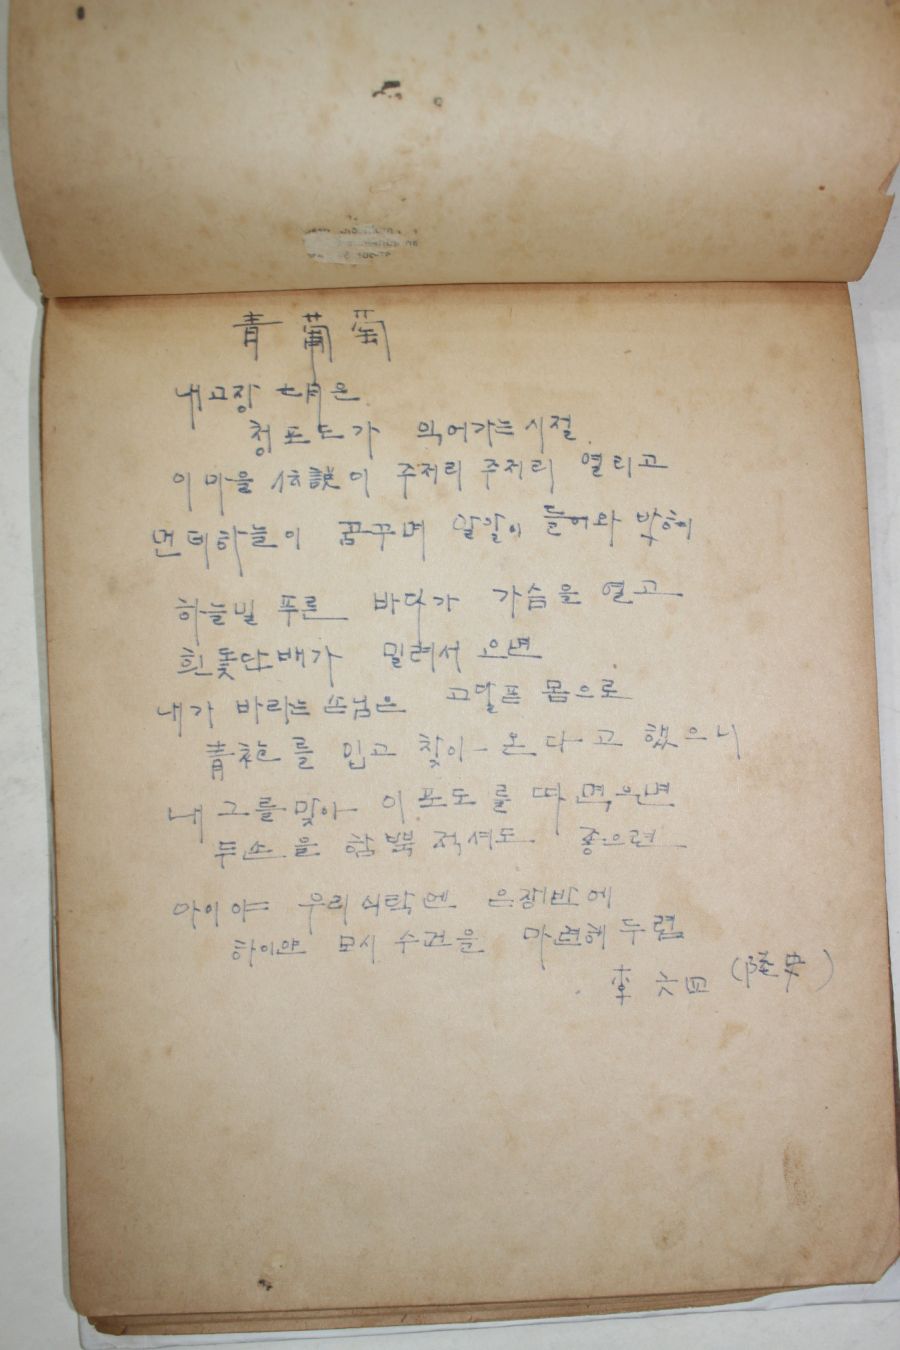 青葡萄
내고장 七月은
청포도가 익어가는 시절
이마을 伝說이 주저리 주저리 열리고
먼데하늘이 꿈꾸며 알알이 들어와 박혀
하늘밑 푸른 바다가 가슴을 열고
흰돛단배가 밀려서 오면
내가 바라는 손님은 고달픈 몸으로
靑袍를 입고 찾아 온다고 했으니
내 그를 맞아 이 포도를 따 먹으면
두손을 함뿍 적셔도 좋으련
아이야 우리 식탁엔 은쟁반에
하이얀 모시 수건을 마련해 두렴
李 六四 (陸史)